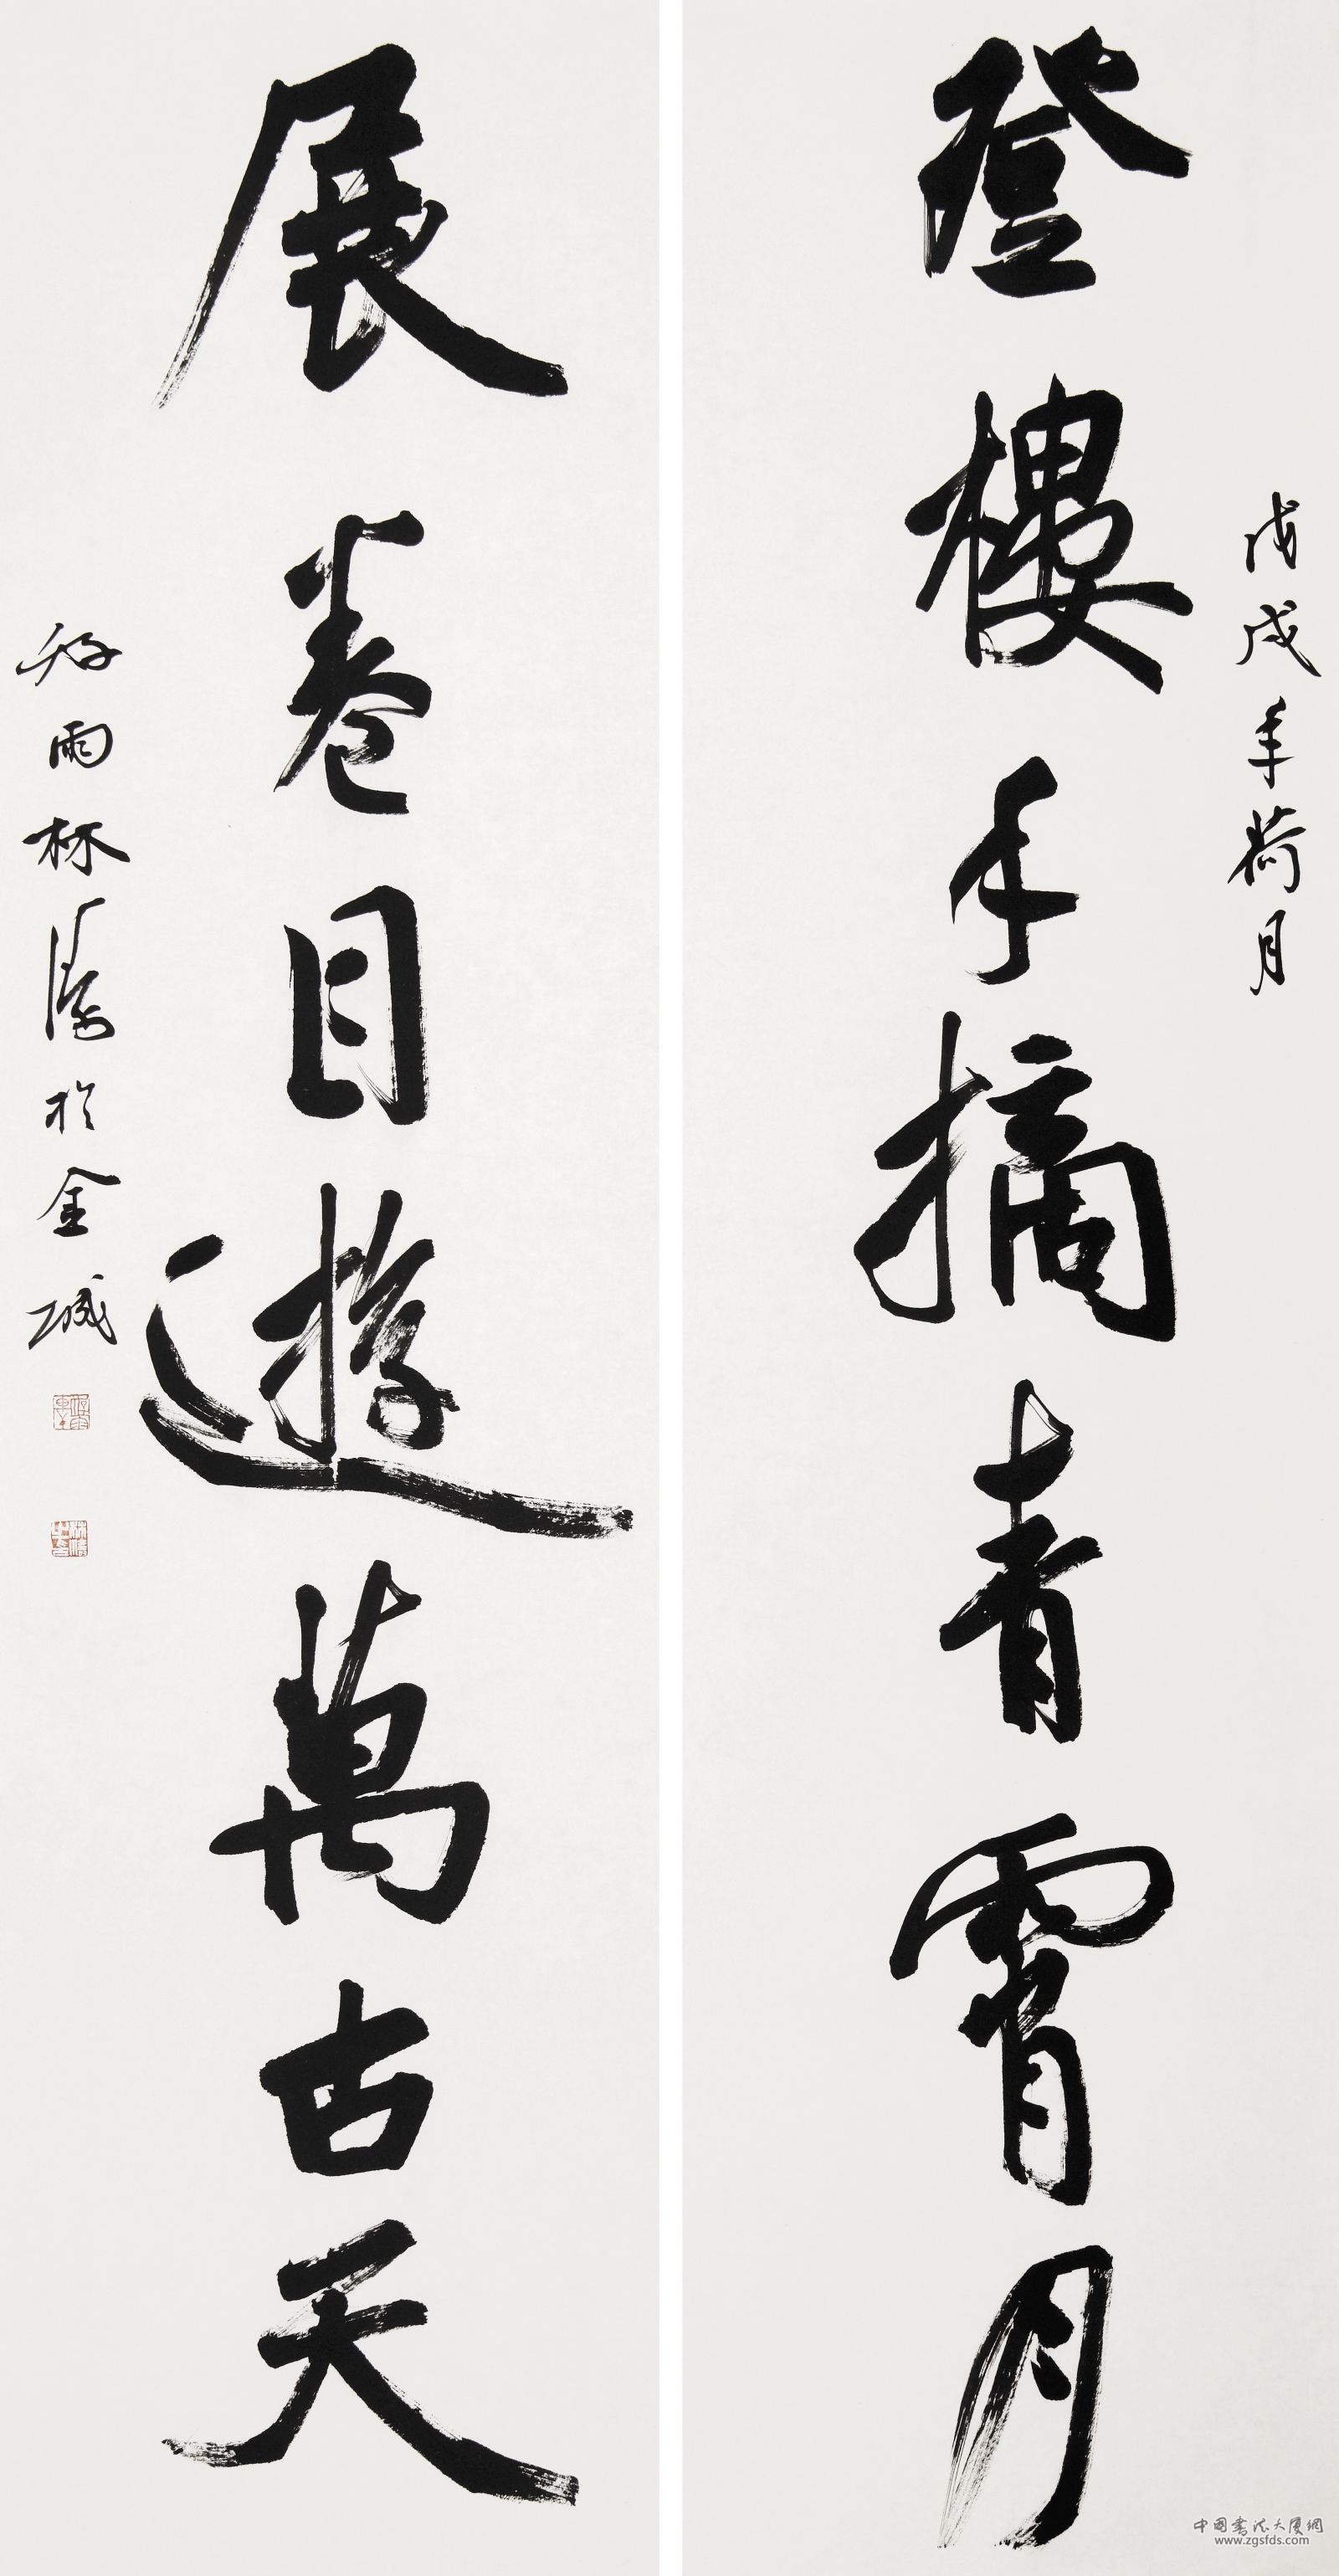 戊戌年荷月
登樓手摘青霄月
展卷目遊萬古天
好雨林濤於金城
中国书法大厦網
www.zgsfds.com